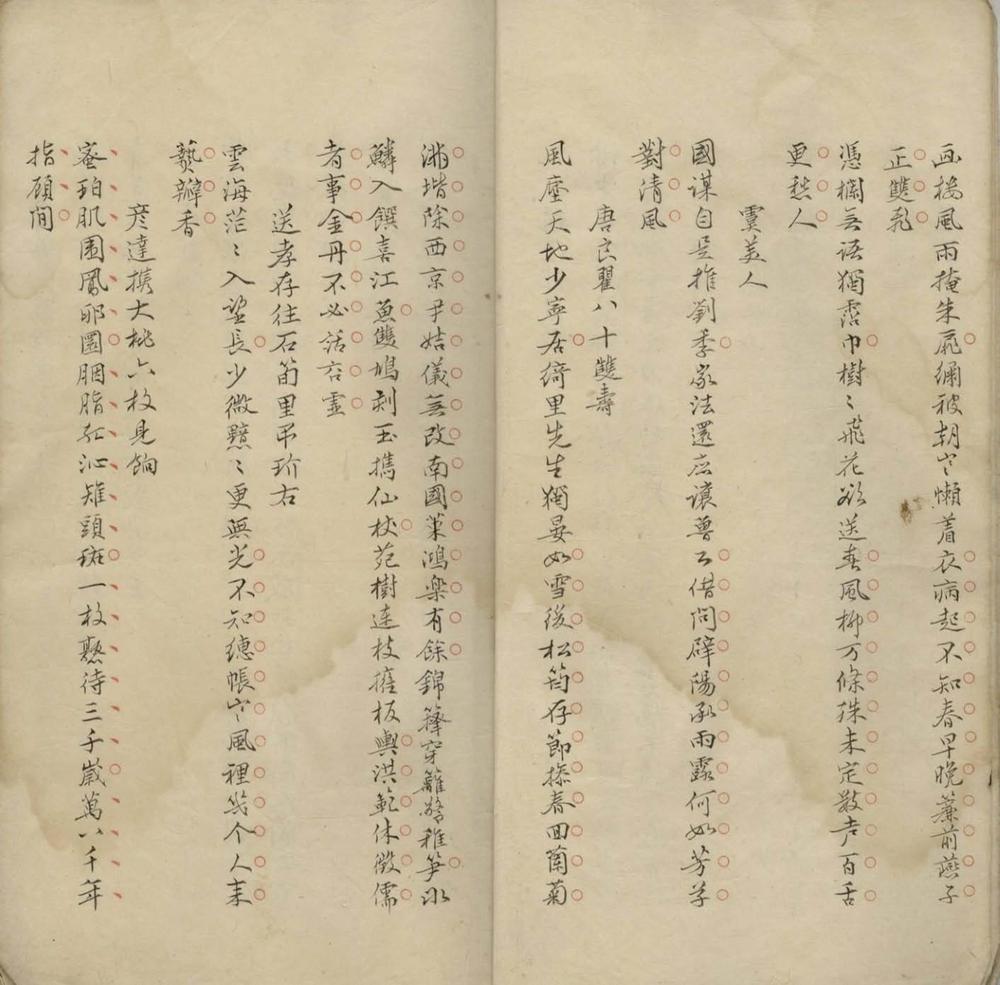 画楼風雨掩朱扉繡被朝寒懶着衣病起不知春早晚簾前燕子
正雙飛
憑欄無語獨霑巾樹〻飛花欲送春風柳万條殊未定數声百舌
更愁人
虞美人
國謀自是推劉季家法還應讓魯公借問辟陽承雨露何如芳草
對清風
唐良翟八十雙壽
風塵天地少寧居綺里先生獨晏如雪後松筠存節操春回蘭菊
滿堦除西京尹姞儀無改南國萊鴻樂有餘錦籜穿籬驚稚笋冰
鱗入饌喜江魚雙鳩刻玉攜仙杖范樹連枝擁板輿洪範休徵儒
者事金丹不必話空靈
送孝存往石茼里弔玠右
雲海茫〻入望長少微黯〻更無光不知繐帳寒風裡幾个人来
爇瓣香
彦達携大桃六枚見餉
蜜珀肌圍鳳卵圜胭脂紅沁雉頭斑一枚懸待三千歲萬八千年
指顧間